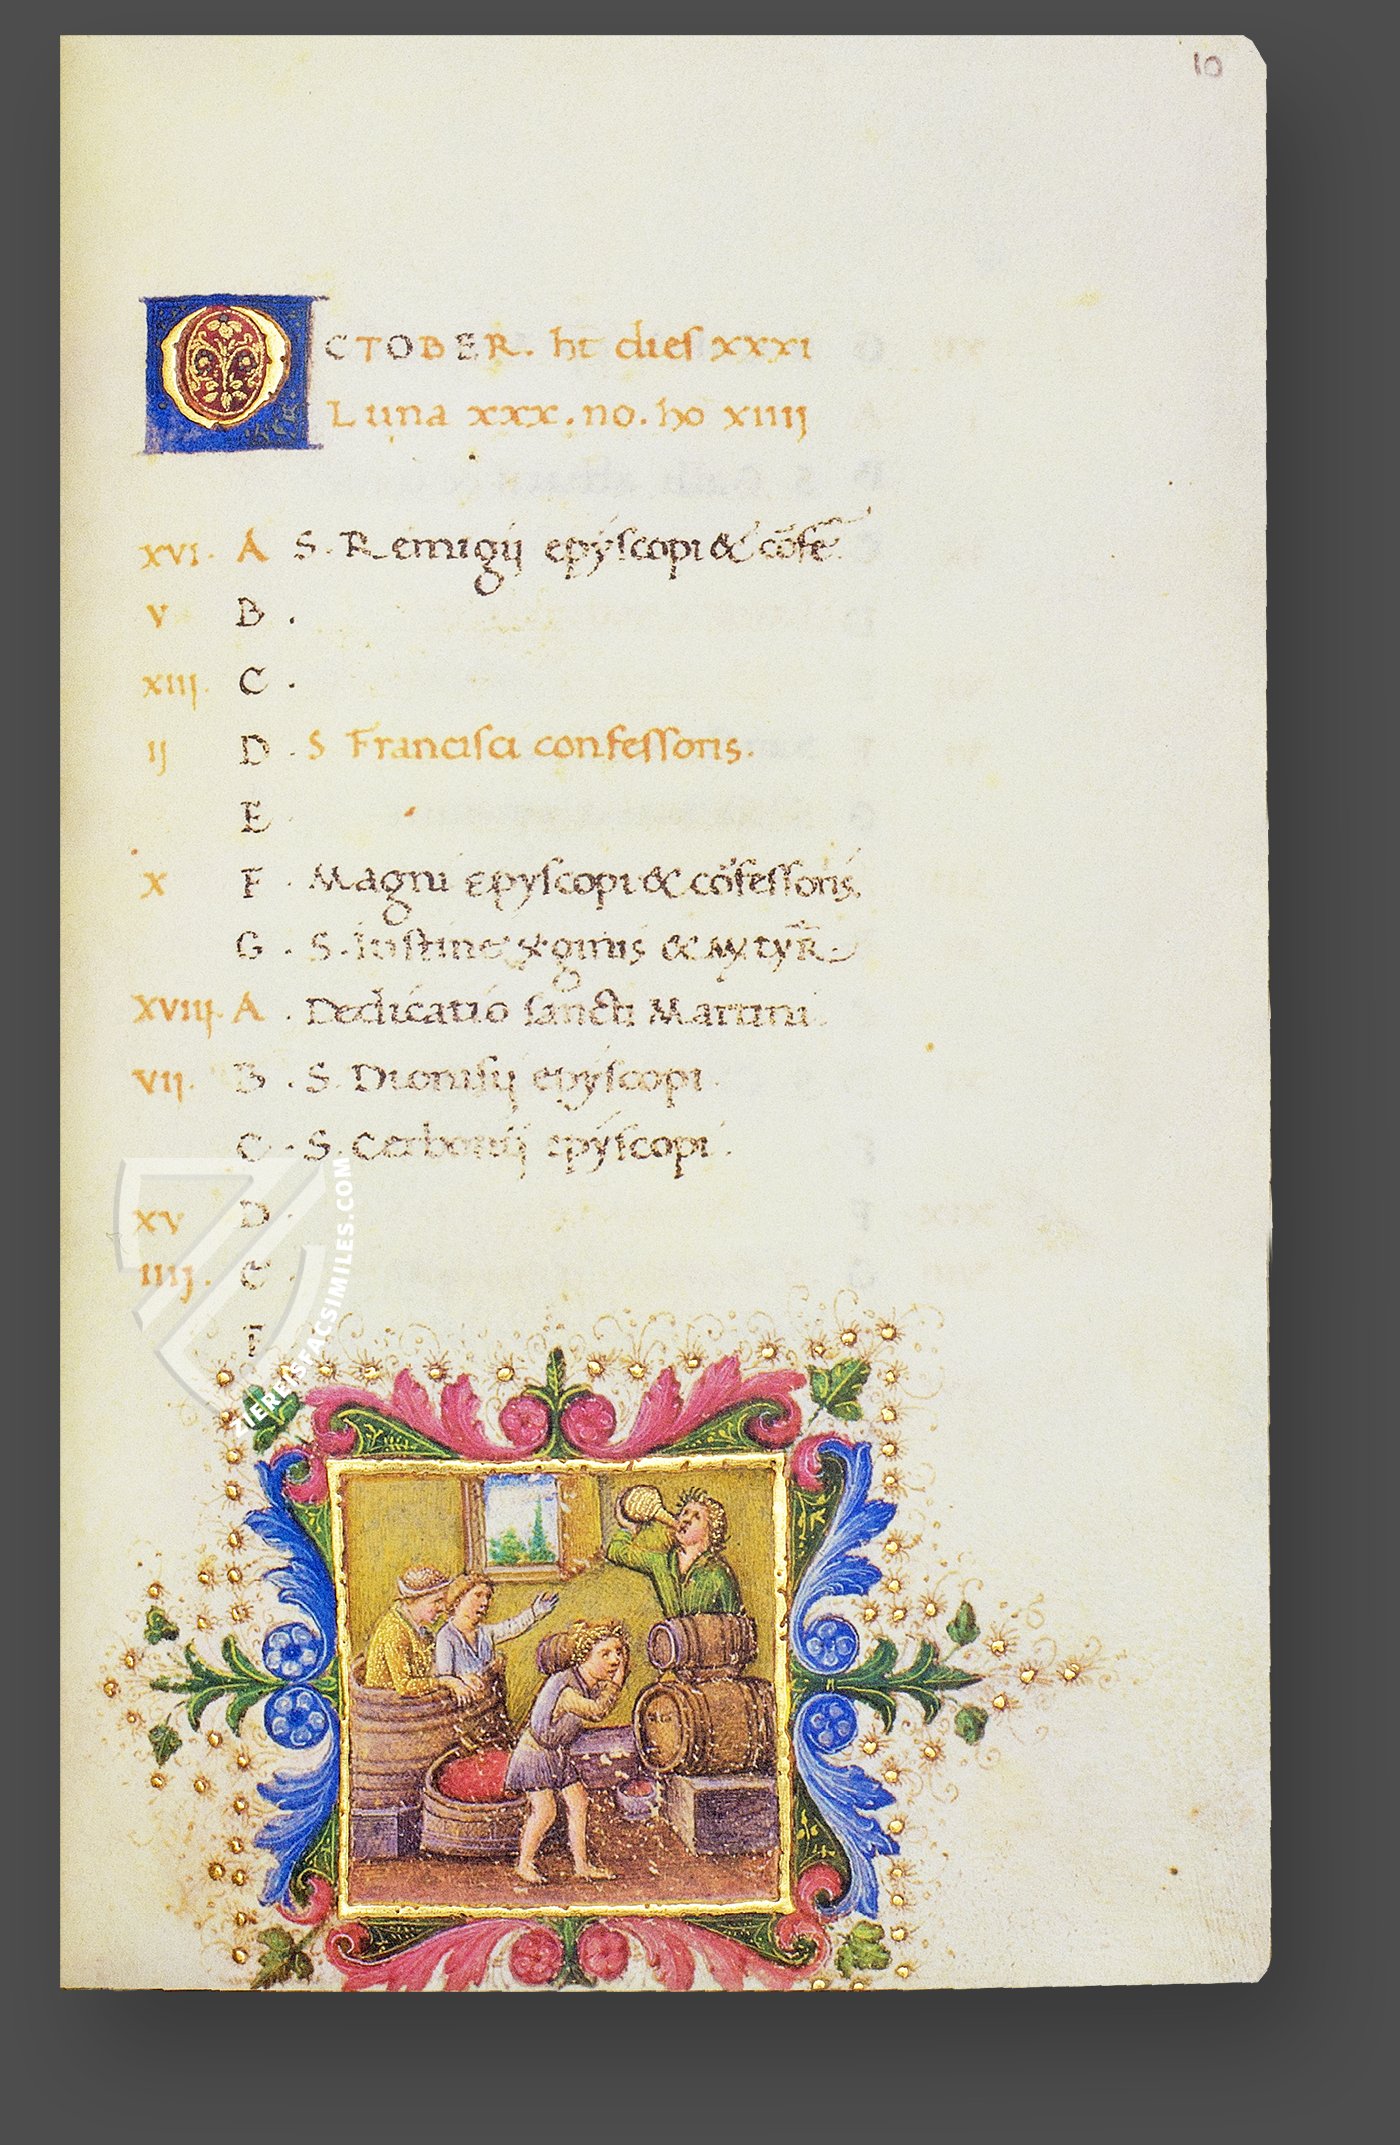 10
OCTOBER. ht dies xxxi
Luna xxx. no. ho xiiij
XVI. A S. Remigij epyscopi & cōfe
V B.
XIII. C.
IJ D. S Francisci confessoris.
E
X F. Magni epyscopi & cōfessoris
G. S. Iustine
XVIIIJ. A. Dedicatio sancti Martini.
VIJ. B. S. Dionisij epyscopi.
C. S. Cerbonij epyscopi.
XV D.
IIIJ. E.
F
ZIEREISFACSIMILES.COM